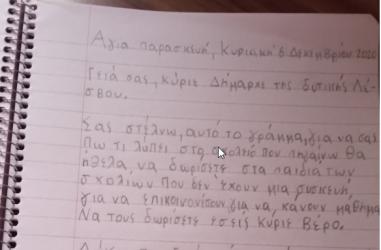 Αγια παρασκευή, Κυριακή 6 Δεκεμβρίου 2020
Γειά σας, Κύριε Δήμαρχε της δυτικής Λέ-
σβου.
Σας στέλνω, αυτό το γράμμα, για να σας
πω τι λύπει στο σχολείο που πηγαίνω θα
ήθελα, να δωρίσετε στα παιδιά των
σχολιών που δεν έχουν μια συσκευή,
για να επικοινωνίσουν για να, κάνουν μάθημα
Να τους δωρίσετε εσείς Κύριε Βέρο.